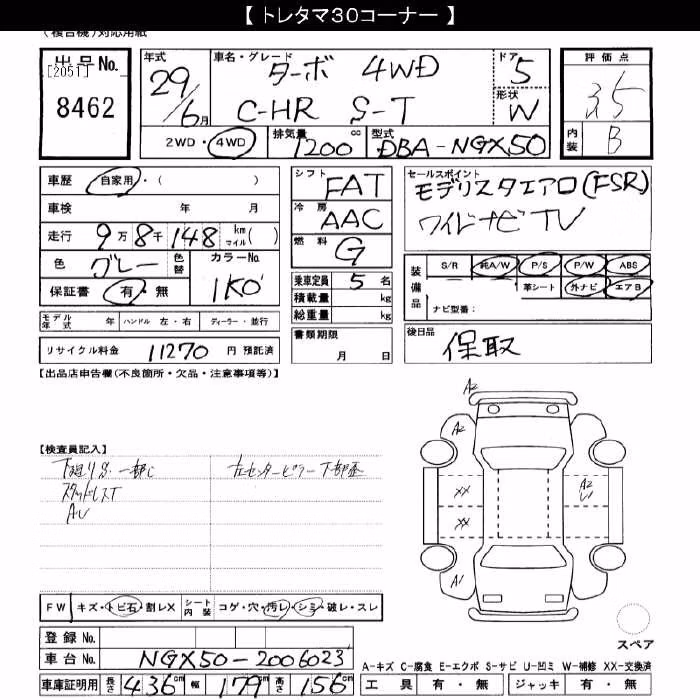 【 トレタマ30コーナー 】
(複合機)対応用紙
出品No. 年式 車名・グレード ドア 評価点
[2051] 29/6月 ターボ 4WD 5
8462 C-HR S-T 形状 W 3.5
2WD・4WD 排気量 1200 cc 型式 DBA-NGX50 内装 B
車歴 自家用・( ) シフト FAT セールスポイント
車検 年 月 冷房 AAC モデリスタエアロ(FSR)
走行 9万8千148 km マイル( ) 燃料 G ワイドナビTV
色 グレー 色替 カラーNo. 1K0 乗車定員 5 名 装備品 S/R 純A/W P/S P/W ABS
保証書 有・無 積載量 kg 革シート 外ナビ エアB
総重量 kg ナビ型番:
モデル年式 年 ハンドル 左・右 ディーラー・並行 書類期限 月 日 後日品 保取
リサイクル料金 11270 円 預託済
【出品店申告欄(不良箇所・欠品・注意事項等)】
【検査員記入】
下廻りS 一部C 左センターピラー下部歪
スタッドレスT
AU
A2
A2
XX
XX
A2
U1
A1
FW キズ・トビ石・割レX シート内装 コゲ・穴・汚レ・シミ・破レ・スレ
登録No. スペア
車台No. NGX50-2006023
A-キズ C-腐食 E-エクボ S-サビ U-凹ミ W-補修 XX-交換済
車庫証明用 長さ 436cm 幅 179cm 高さ 156cm 工具 有・無 ジャッキ 有・無